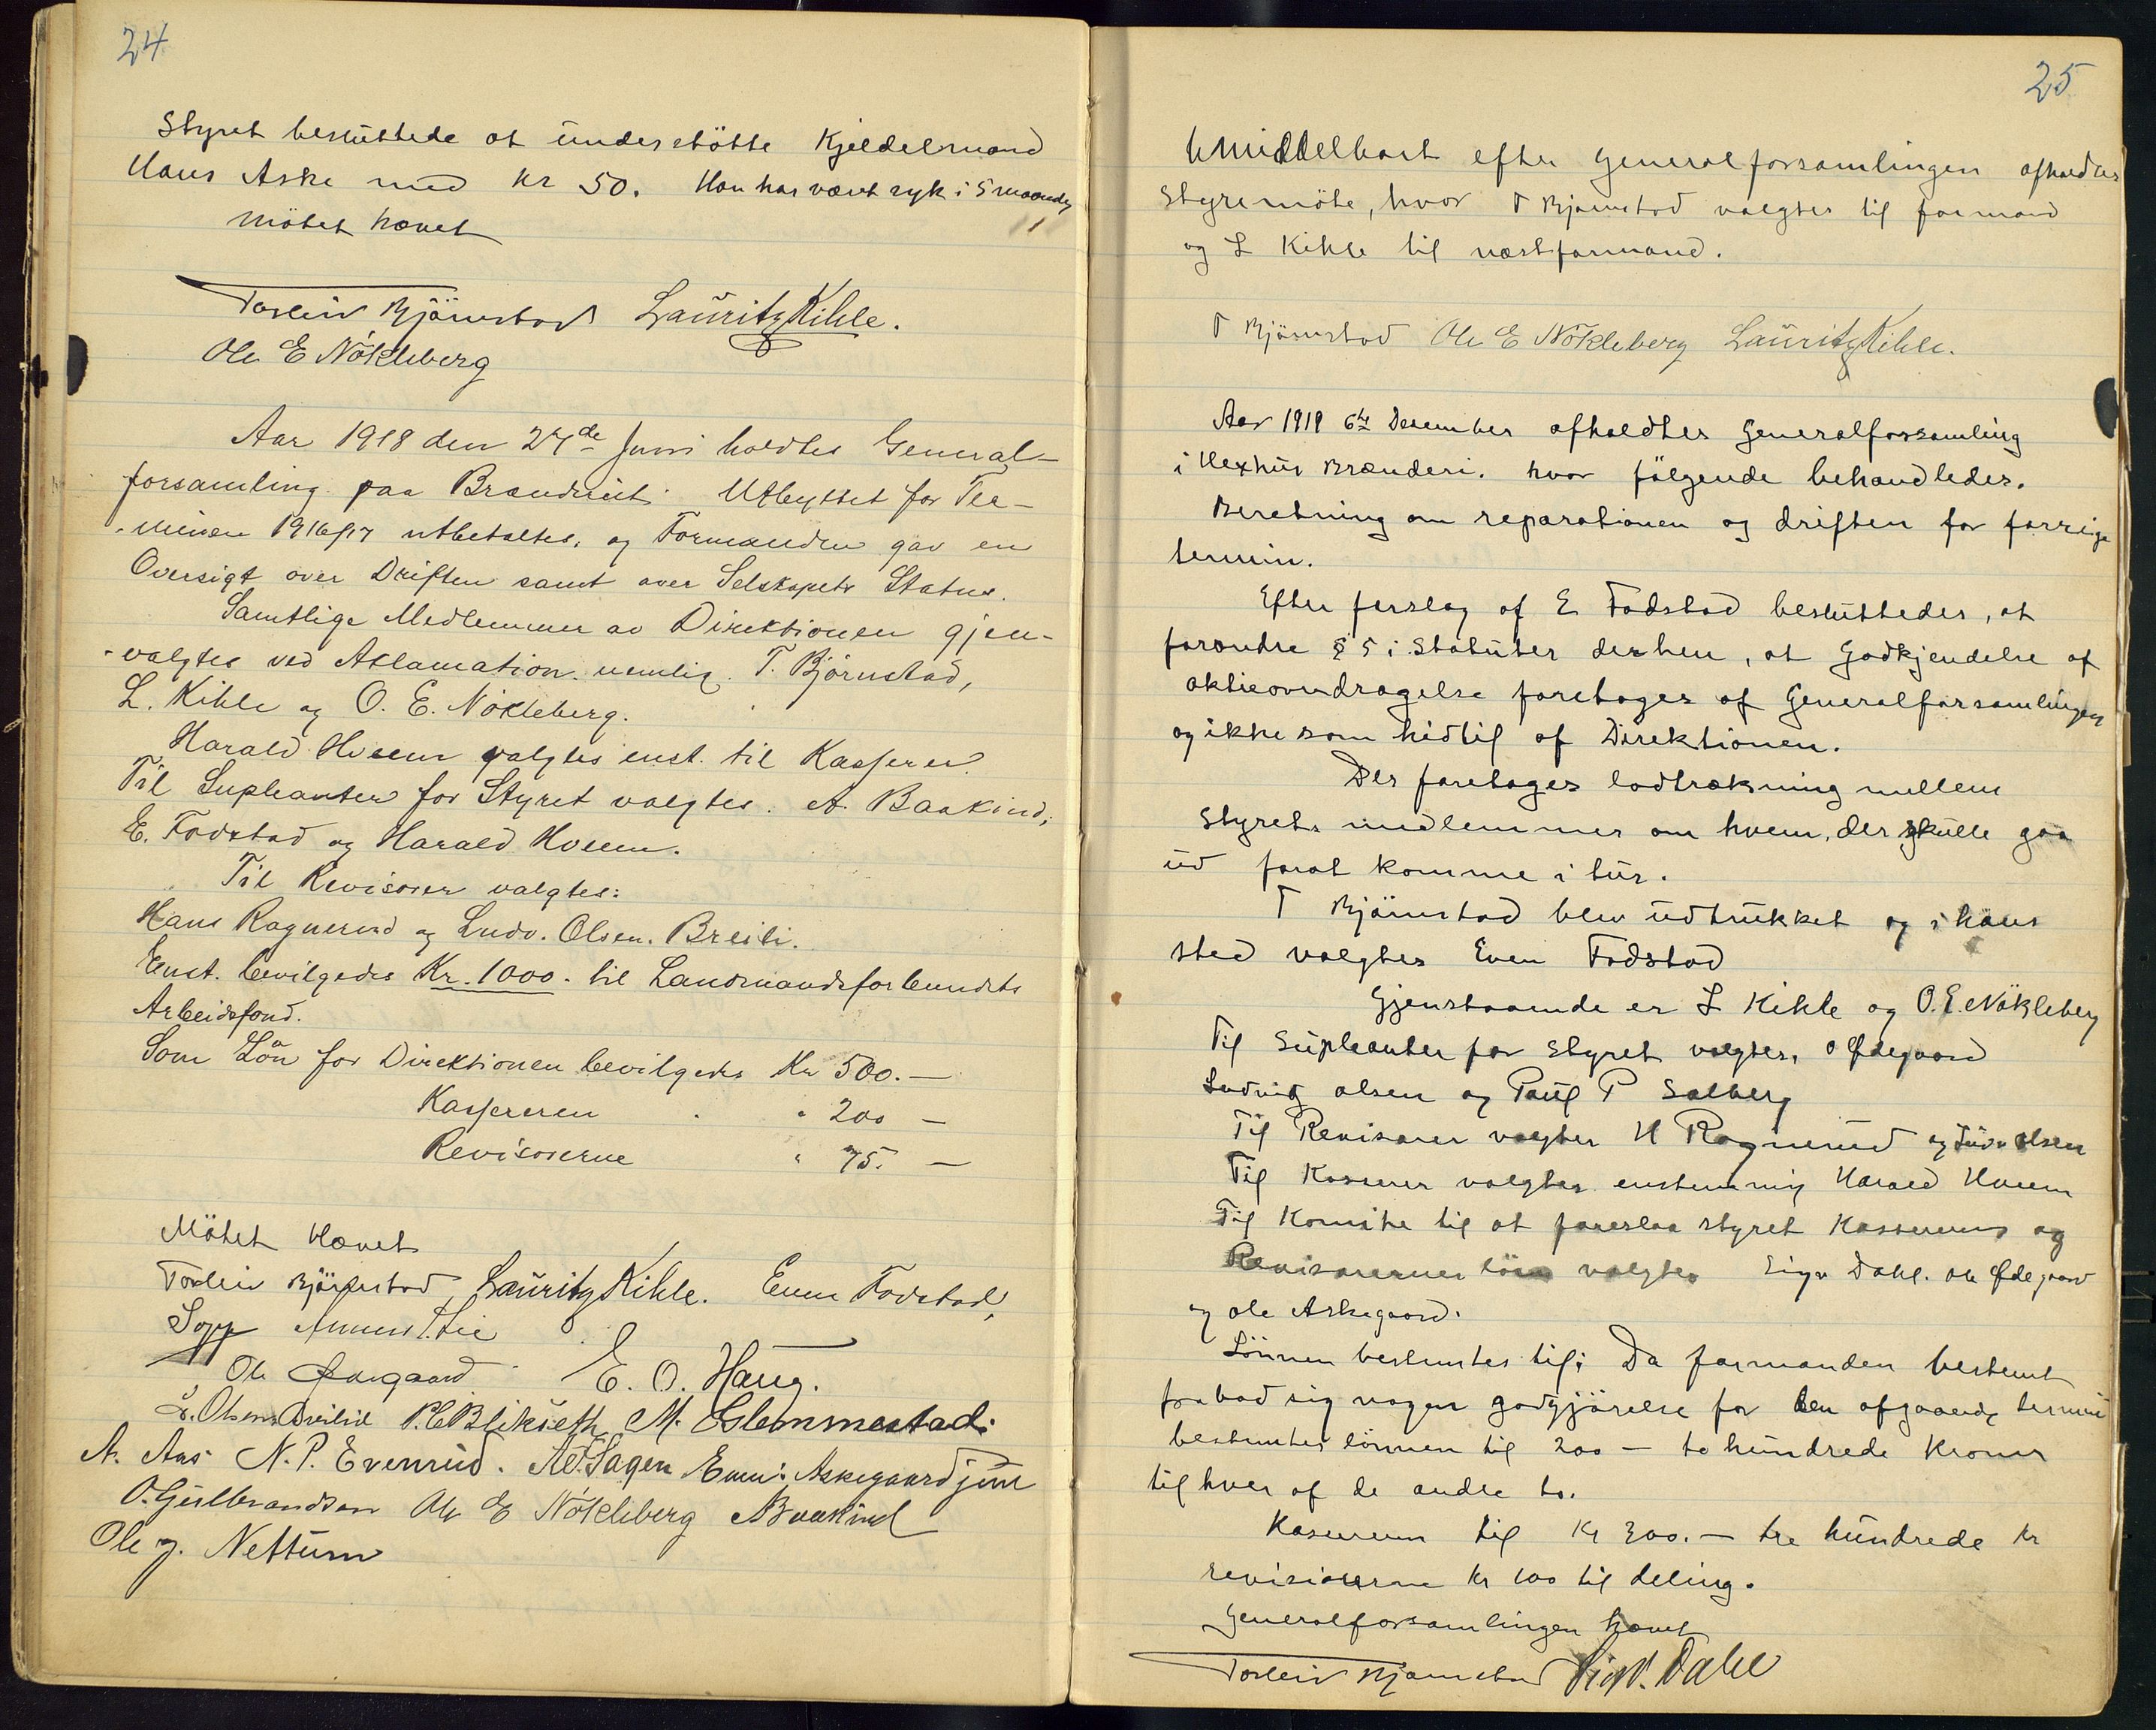 24
Styret besluttede at understötte Kjeldelmand
Hans Aske med kr 50. Han har været syk i 5 maander
Mötet hævet
Torleiv Björnstad Lauritz Kihle.
Ole E Nökleberg
Aar 1918 den 27de Juni holdtes General-
forsamling paa Brænderiet. Utbyttet for Ter-
minen 1916/17 utbetaltes, og Formanden gav en
Oversigt over Driften samt over Selskapets Status.
Samtlige Medlemmer av Direktionen gjen-
-valgtes ved Aklamation. nemlig. T. Björnstad,
L. Kihle og O. E. Nökleberg.
Harald Hveem valgtes enst. til Kasserer.
Til Supleanter for Styret valgtes. A. Baakind,
E. Fodstad og Harald Hveem.
Til Revisorer valgtes:
Hans Ragnerud og Ludv. Olsen. Breili.
Enst. bevilgedes Kr. 1000. til Landmandsforbundets
Arbeidsfond.
Som Lön for Direktionen bevilgedes Kr 500.—
Kassereren " 200 —
Revisorerne " 75. —
Mötet Hævet
Torleiv Björnstad Lauritz Kihle. Even Fodstad,
Ole Ødegaard E. O. Haug.
L. Olsen Breilid P. E Blikseth M. Glemmestad.
A. Aas N. P. Evenrud. Even Askegaard jun
O. Gulbrandsen Ole E Nökleberg A Baakind
Ole J. Nettum
25
Umiddelbart efter Generalforsamlingen afholdtes
Styremöte, hvor T Björnstad valgtes til formand
og L Kihle til næstformand.
T Björnstad Ole E Nökleberg Lauritz Kihle.
Aar 1919 6te Desember afholdtes Generalforsamling
i Hexhus Brænderi. hvor fölgende behandledes.
Beretning om reparationen og driften for forrige
termin.
Efter forslag af E Fodstad besluttedes, at
forandre § 5 i Statuter derhen, at Godkjendelse af
aktieoverdragelse foretages af Generalforsamlingen
og ikke som hidtil af Direktionen.
Der foretages lodtrækning mellem
Styrets medlemmer om hvem, der skulle gaa
ud forat komme i tur.
T Björnstad blev udtrukket og i hans
sted valgtes Even Fodstad
Gjenstaaende er L Kihle og O. E. Nökleberg
Til Supleanter for Styret valgtes, O Ødegaard
Ludvig Olsen og Paul P Salberg
Til Revisorer valgtes H Ragnerud og Ludv Olsen
Til Kaserer valgtes enstemmig Harald Hveem
Til Komite til at foreslaa styret Kassereren og
Revisorernes lön valgtes Sigv Dahl. Ole Ødegaard
og Ole Askegaard.
Lönnen bestemtes til; Da formanden bestemt
frabad sig nogen godgjörelse for den afgaaende termin
bestemtes lönnen til 200 — to hundrede Kroner
til hver af de andre to.
Kasereren til Kr 300.— tre hundrede kr
revisorerne kr 100 til deling.
Generalforsamlingen hævet
Torleiv Bjørnstad Sigv. Dahl